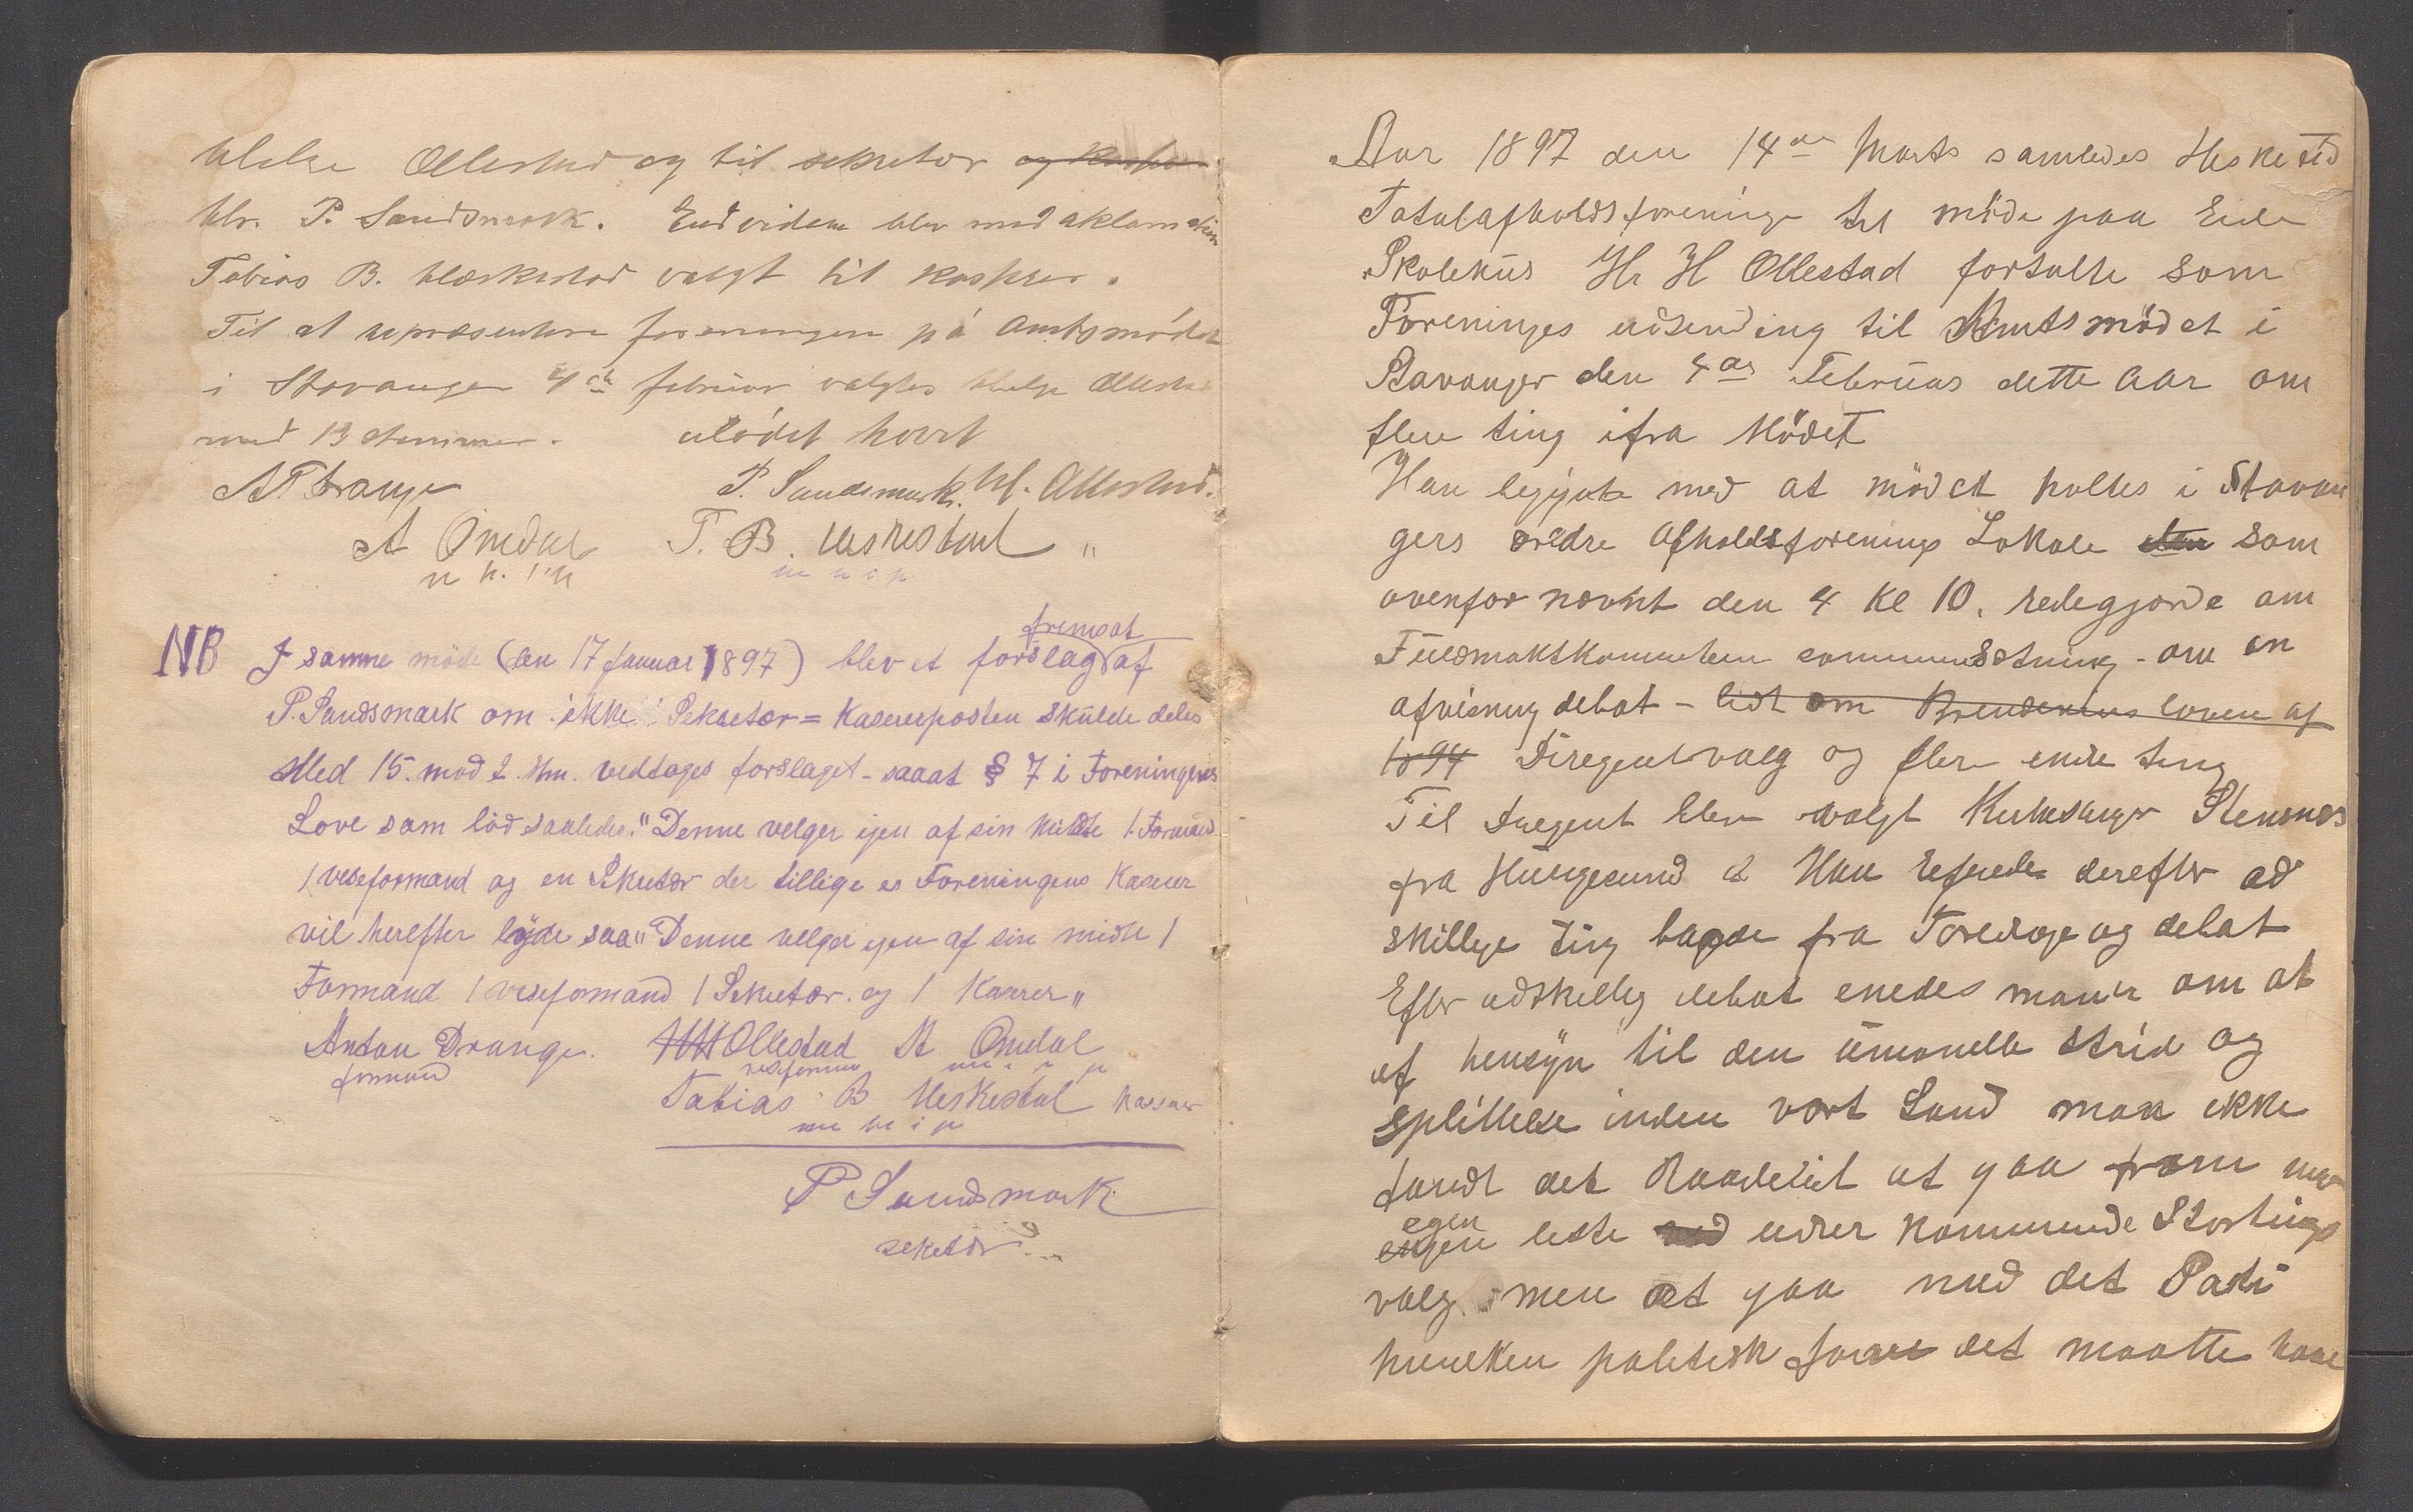 Helge Ollestad og til sekretær og kasser
blv. P. Sandsmark. Endvidere blev med aklamation
Tobias B. Heskestad valgt til kasserer.
Til at repræsentere foreningen på Amtsmødet
i Stavanger 4de februar valgtes Helge Ollestad
med 13 stemmer. Mödet hævt
A Drange P. Sandsmark. H. Ollestad.
A Omdal T. B. Heskestad "
m p
NB I samme möde (den 17 Januar 1897) blev et forslag fremsat af
P. Sandsmark om ikke Sekretær = Kasererposten skulde deles
Med 15. mod 2 stm. vedtoges forslaget - saaat § 7 i Foreningens
Love som löd saaledes. "Denne velger igen af sin Midte 1. Formand
1 viseformand og en Sekretær der tillige er Foreningens Kaserer
vil herefter lyde saa "Denne velger igen af sin midte 1
Formand 1 viseformand 1 Sekretær. og 1 Kasrer "
Anton Drange. HH Ollestad A Omdal
formand viseformand
Tobias B Heskestad kasserer
m p
P Sandsmark
sekretær
Aar 1897 den 14de Marts samledes Heskestad
Totalafholdsforening til möde paa Eide
Skolehus Hr H Ollestad fortalte som
Foreninges udsending til Amtsmödet i
Stavanger den 4de Februar dette Aar om
flere ting ifra Mödet
Han begynte med at mödet holtes i Stavan
gers ældre Afholdsforenings Lokale den som
ovenfor nævnt den 4 Kl 10. redegjorde om
Fuldmaktskomiteens sammensetning - om en
afvisning debat - lidt om Brendevins loven af
1894 Diregentvalg og flere endre ting
Til Diregent blev valgt Kirkesanger Stensnes
fra Haugesund & Han referede derefter ad
skillige ting baade fra Foredrage og debat
Efter adskillig debat enedes man om at
af hensyn til den unionelle strid og
splittelse inden vort Land man ikke
fandt det Raadelit at gaa fram med
egen
engen liste ved under kommende Stortings
valg men at gaa med det Parti
hvilken politisk farve det maatte have